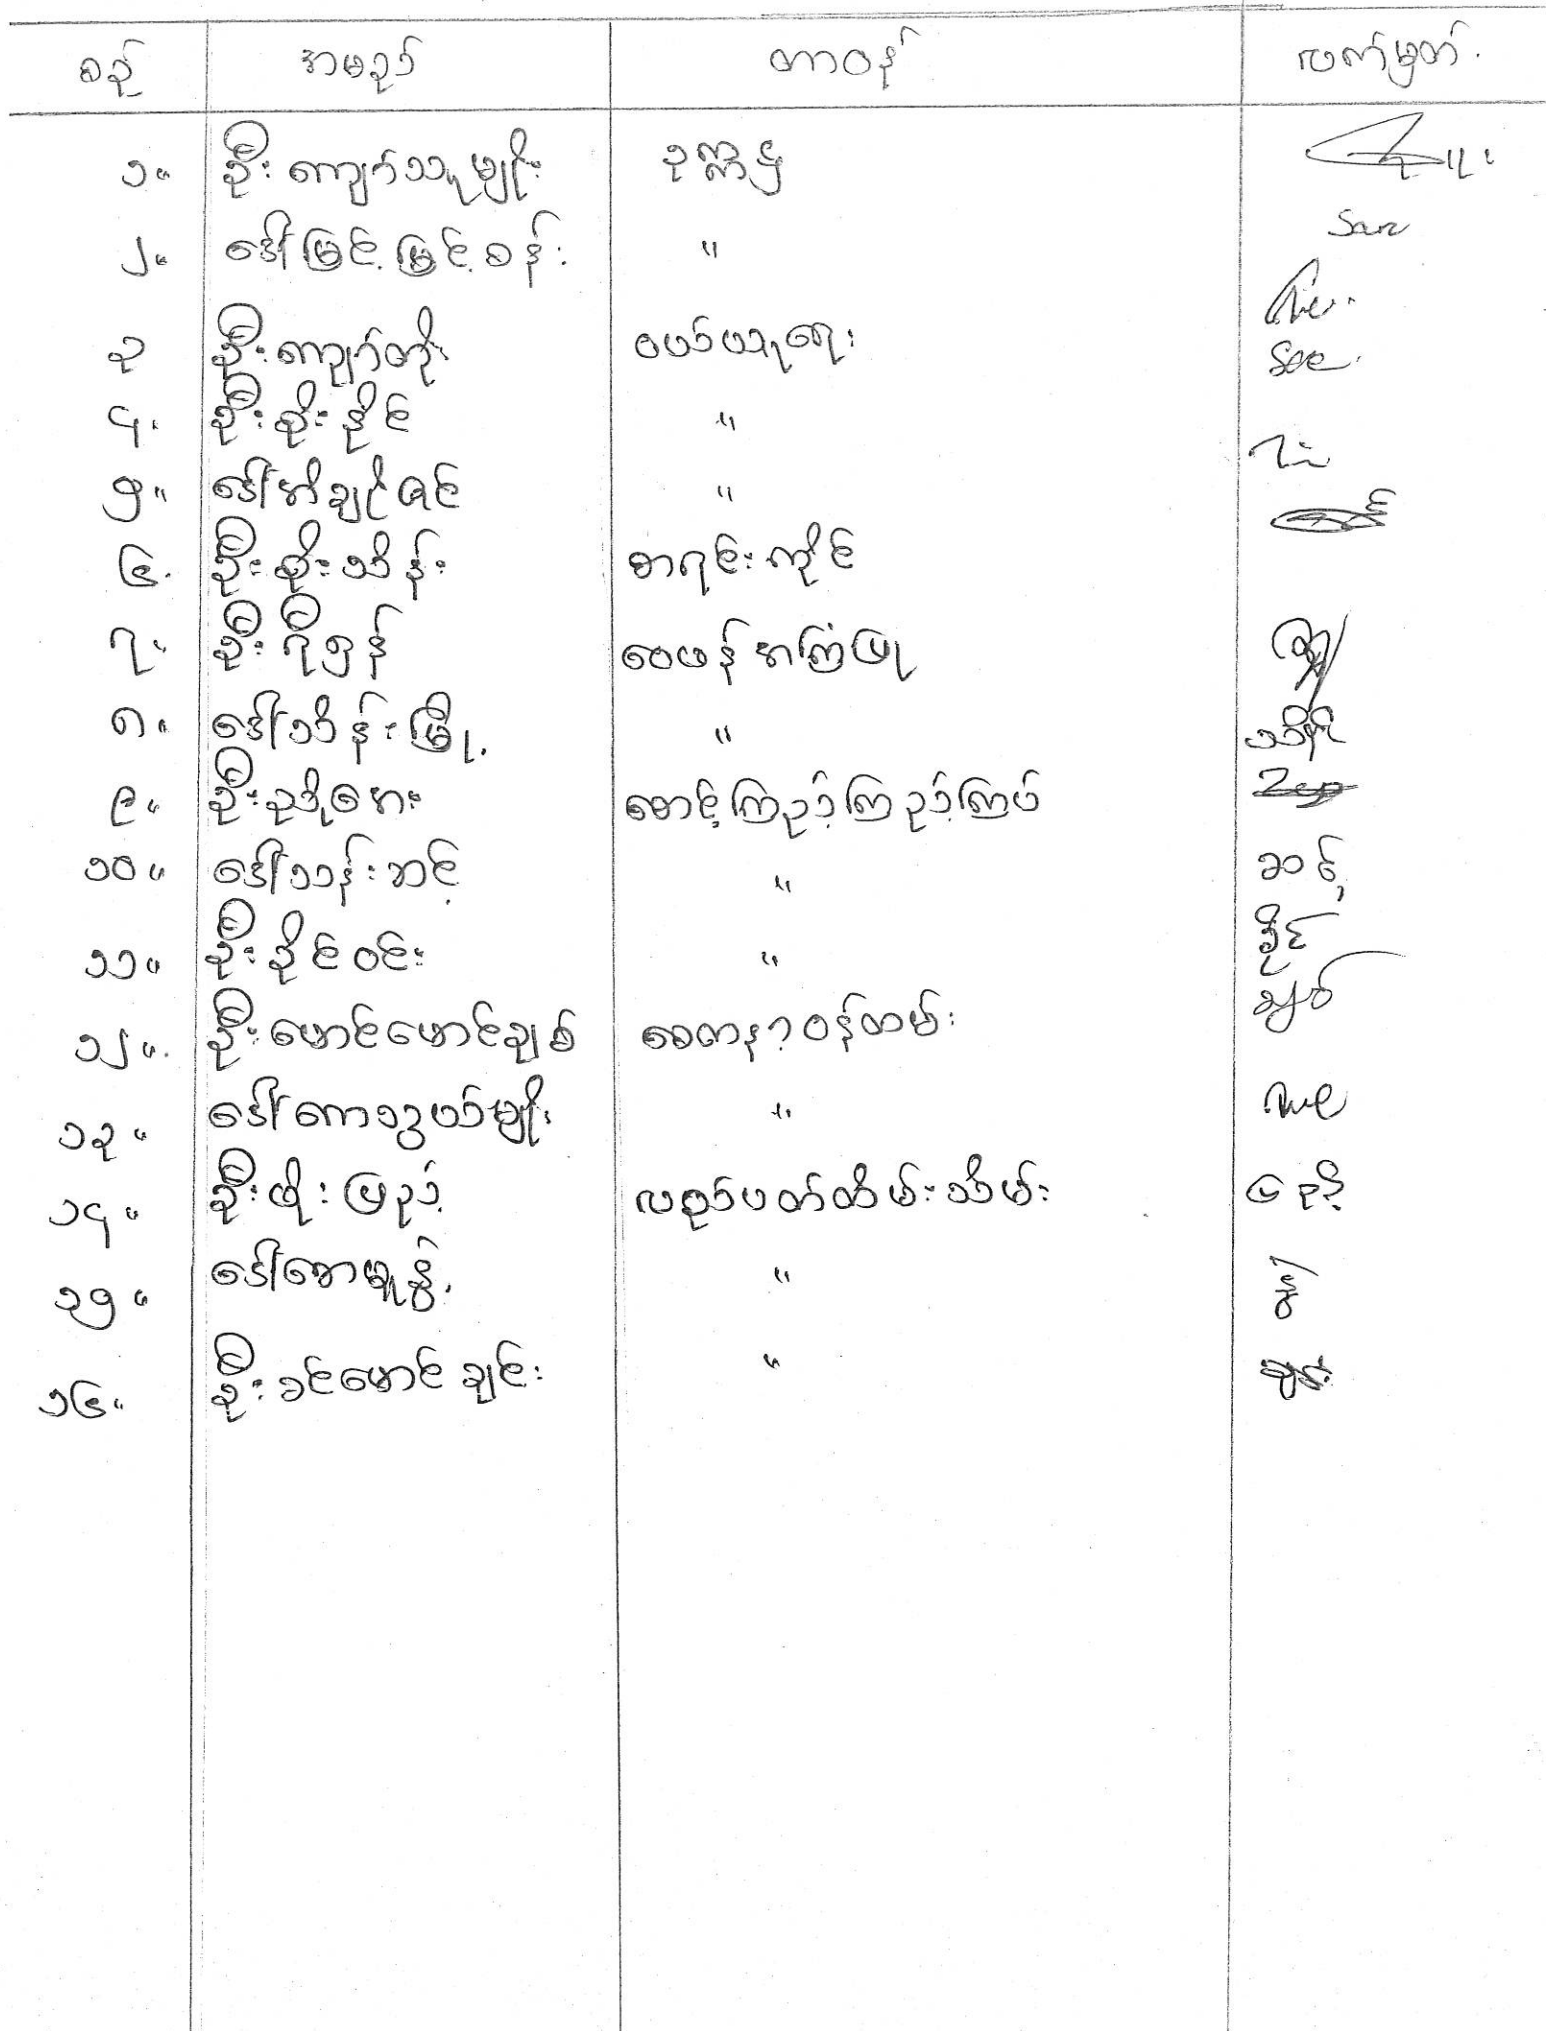 စဉ် အမည် တာဝန် လက်မှတ်.
၁။ ဦးကျော်သူမျိုး ဥက္ကဋ္ဌ
၂။ ဒေါ်မြင့်မြင့်စန်း " San
၃ ဦးကျော်တိုး ဝယ်ယူရေး
၄. ဦးစိုးနိုင် " Soe.
၅။ ဒေါ်အိချိုဇင် "
၆. ဦးစိုးသိန်း စာရင်းကိုင်
၇. ဦးဂိုဏန် ဝေဖန်အကြံပြု
၈။ ဒေါ်သိန်းမြို့ "
၉။ ဦးညိုအေး စောင့်ကြည့်ကြည့်ကြပ်
၁၀။ ဒေါ်သန်းဆင့် " ဆင့်
၁၁။ ဦးခိုင်ဝင်း " ခိုင်
၁၂။ ဦးမောင်မောင်ချစ် စေတနာ့ဝန်ထမ်း ချစ်
၁၃။ ဒေါ်ကေသွယ်မျိုး "
၁၄။ ဦးဖိုးပြည့် လစဉ်ပတ်ထိမ်းသိမ်း ပြည့်
၁၅။ ဒေါ်အေးမူနွဲ့ "
၁၆။ ဦးခင်မောင်ချင်း " ချင်း